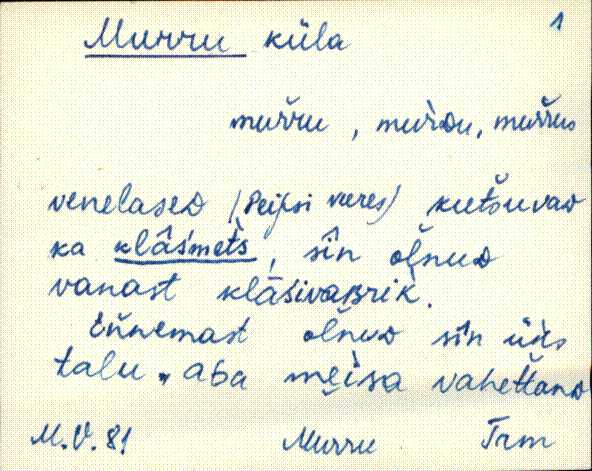 Murru küla 1
mur̆ru, mur̀du, mur̆rus
venelaseᴅ (Peipsi veeres) kutsuvaᴅ
ka klâśmet̀s, sîn oľnuᴅ
vanast klāsivaʙrik.
Eńnemast oľnuᴅ sîn üks
talu, aba meìsa vahettanᴅ
M.V. 81 Murru Trm